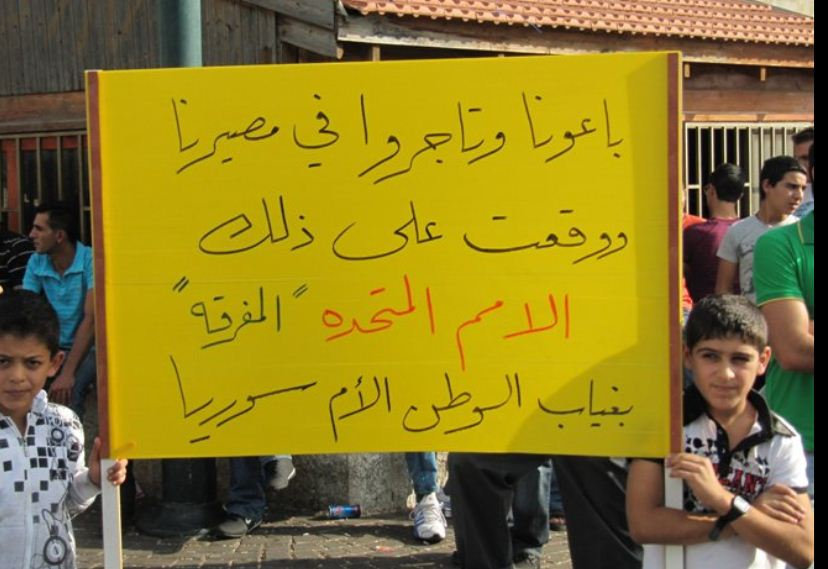 باعونا وتاجروا في مصيرنا
ووقعت على ذلك
الامم المتحده "المفرقه"
بغياب الوطن الأم سوريا